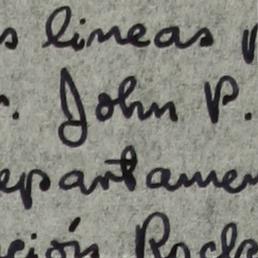 s lineas p
r. John P.
epartamen
ción Rocks